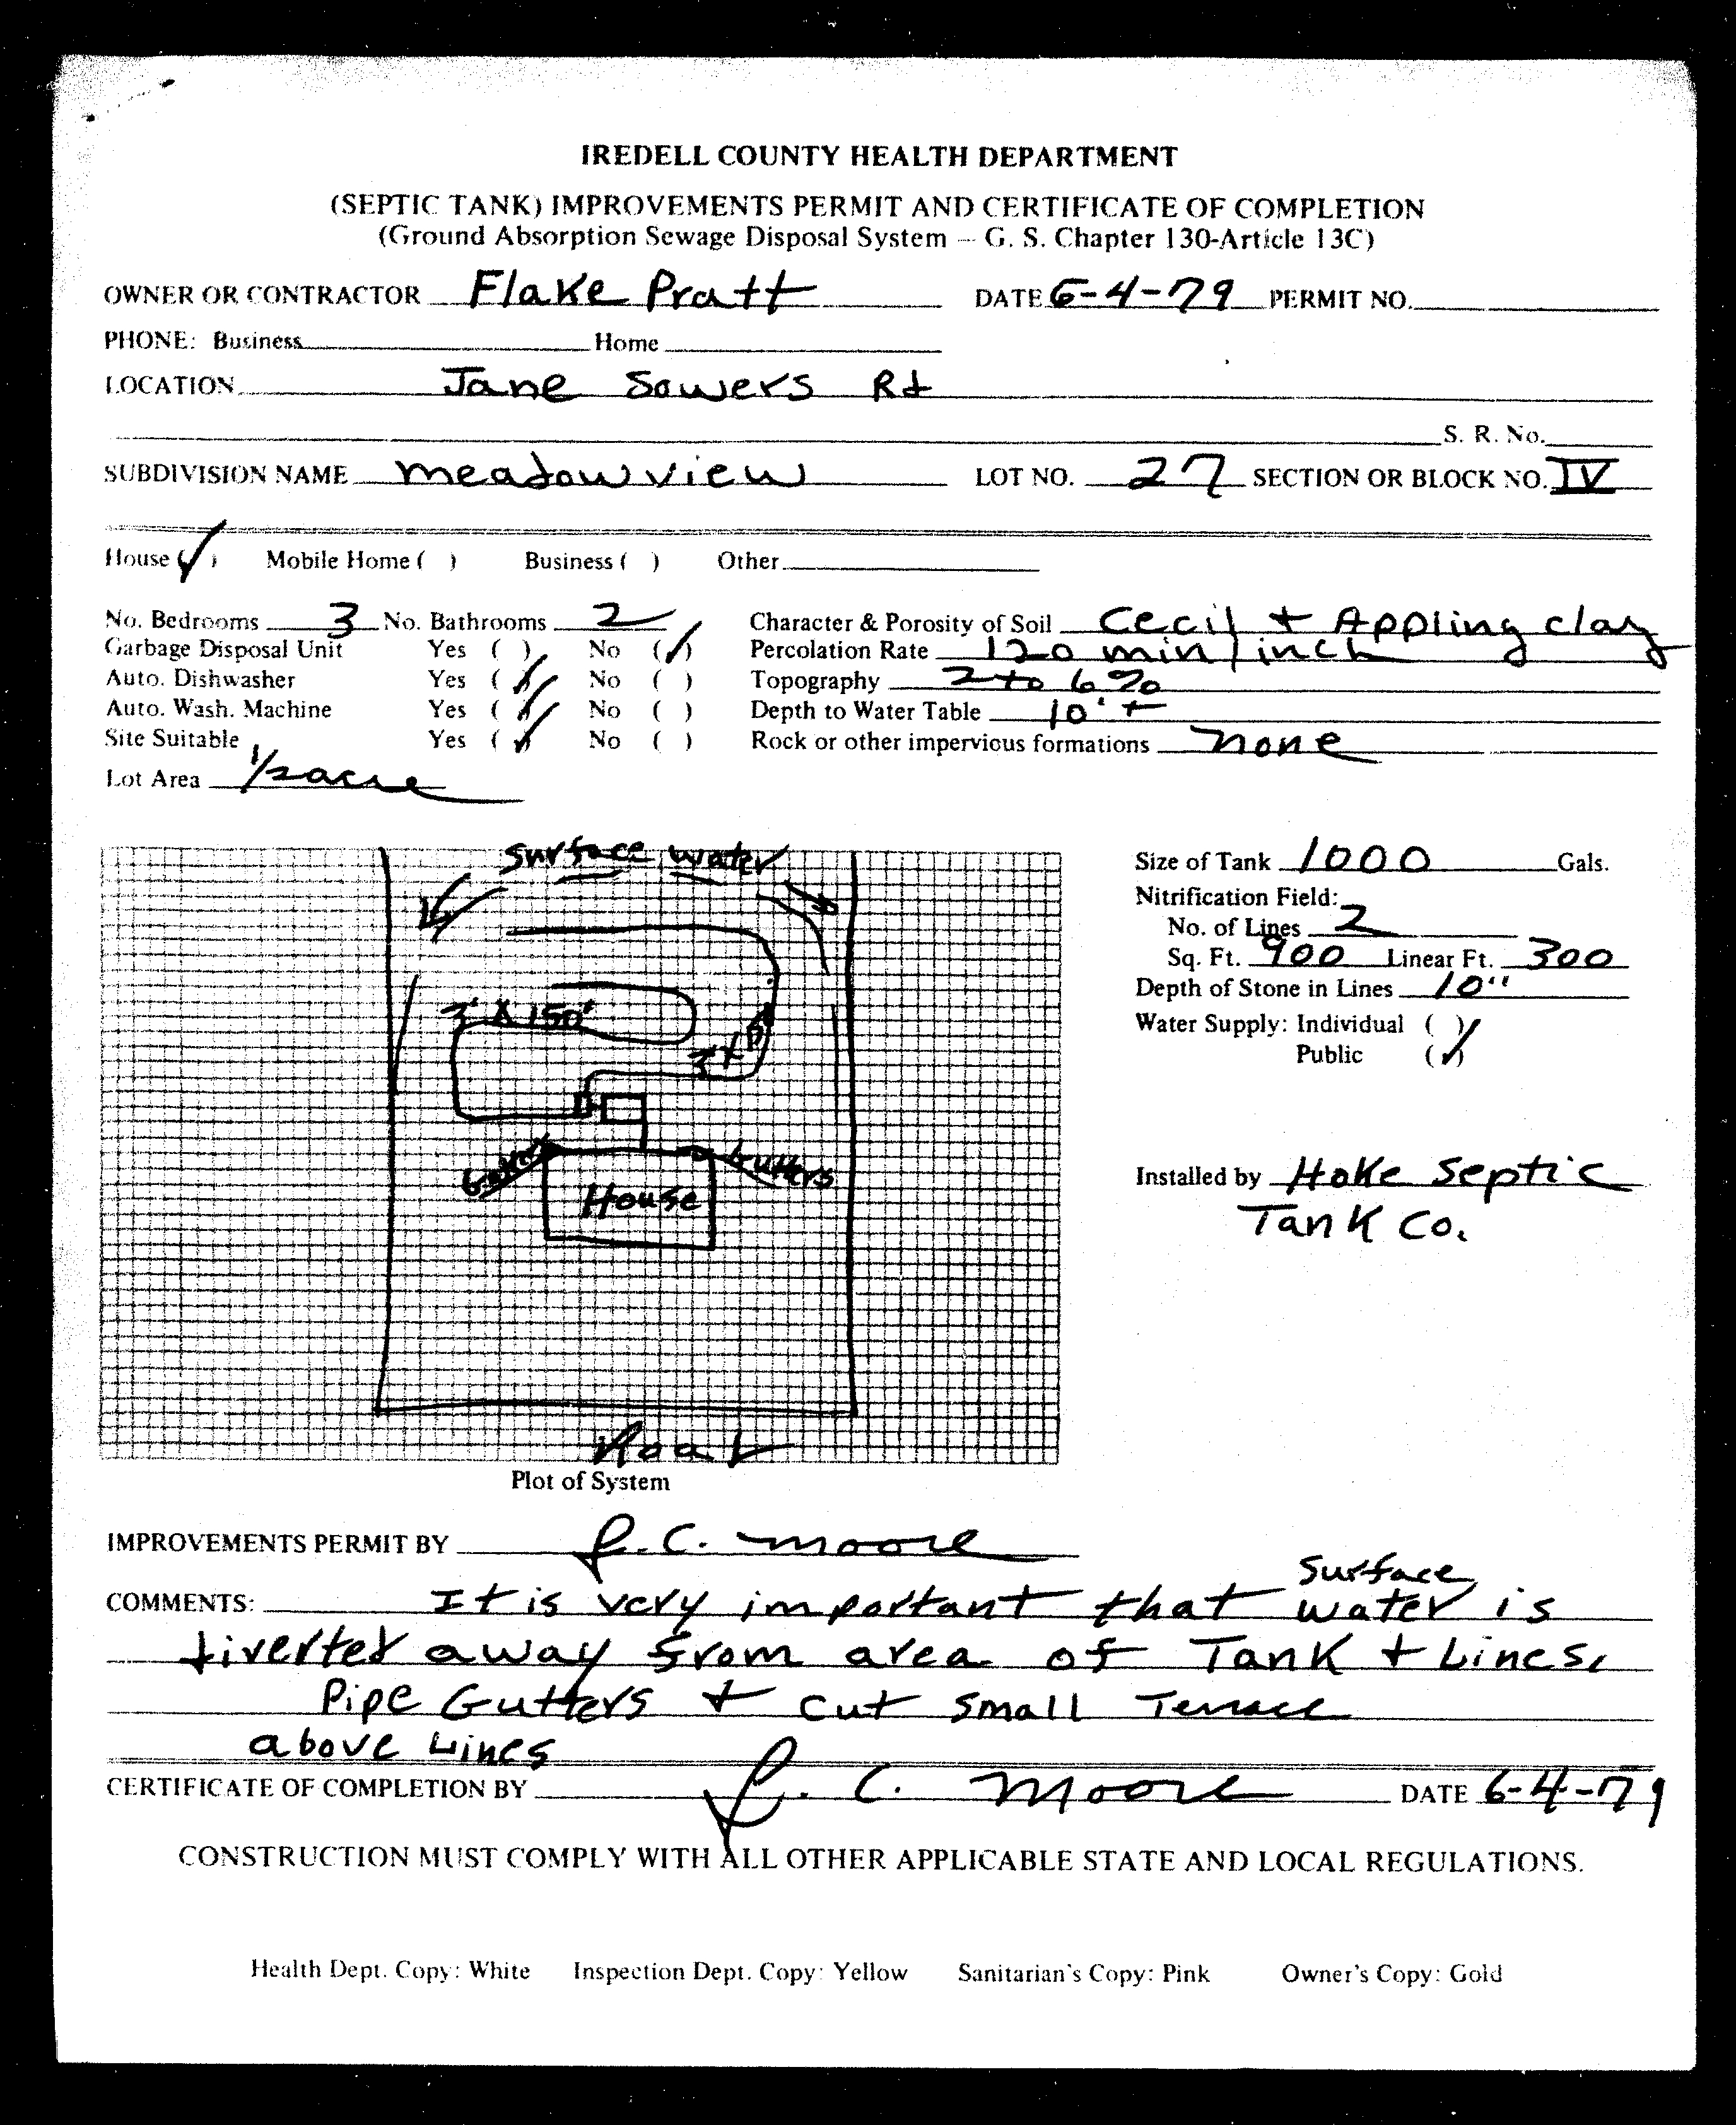 IREDELL COUNTY HEALTH DEPARTMENT
(SEPTIC TANK) IMPROVEMENTS PERMIT AND CERTIFICATE OF COMPLETION
(Ground Absorption Sewage Disposal System – G. S. Chapter 130-Article 13C)
OWNER OR CONTRACTOR Flake Pratt DATE 6-4-79 PERMIT NO.
PHONE: Business Home
LOCATION Jane Sowers Rd
S. R. No.
SUBDIVISION NAME meadow view LOT NO. 27 SECTION OR BLOCK NO. IV
House (✓) Mobile Home ( ) Business ( ) Other
No. Bedrooms 3 No. Bathrooms 2 Character & Porosity of Soil Cecil + Appling clay
Garbage Disposal Unit Yes ( ) No (✓) Percolation Rate 120 min/inch
Auto. Dishwasher Yes (✓) No ( ) Topography 2 to 6%
Auto. Wash. Machine Yes (✓) No ( ) Depth to Water Table 10' +
Site Suitable Yes (✓) No ( ) Rock or other impervious formations none
Lot Area 1/2 acre
surface water
3' X 150'
3' X
gutters
gutters
House
Road
Plot of System
Size of Tank 1000 Gals.
Nitrification Field:
No. of Lines 2
Sq. Ft. 900 Linear Ft. 300
Depth of Stone in Lines 10"
Water Supply: Individual ( )
Public (✓)
Installed by Hoke Septic
Tank Co.
IMPROVEMENTS PERMIT BY C. Moore
surface
COMMENTS: It is very important that water is
diverted away from area of Tank + Lines.
Pipe Gutters + cut small Terrace
above Lines
CERTIFICATE OF COMPLETION BY C. Moore DATE 6-4-79
CONSTRUCTION MUST COMPLY WITH ALL OTHER APPLICABLE STATE AND LOCAL REGULATIONS.
Health Dept. Copy: White Inspection Dept. Copy: Yellow Sanitarian's Copy: Pink Owner's Copy: Gold